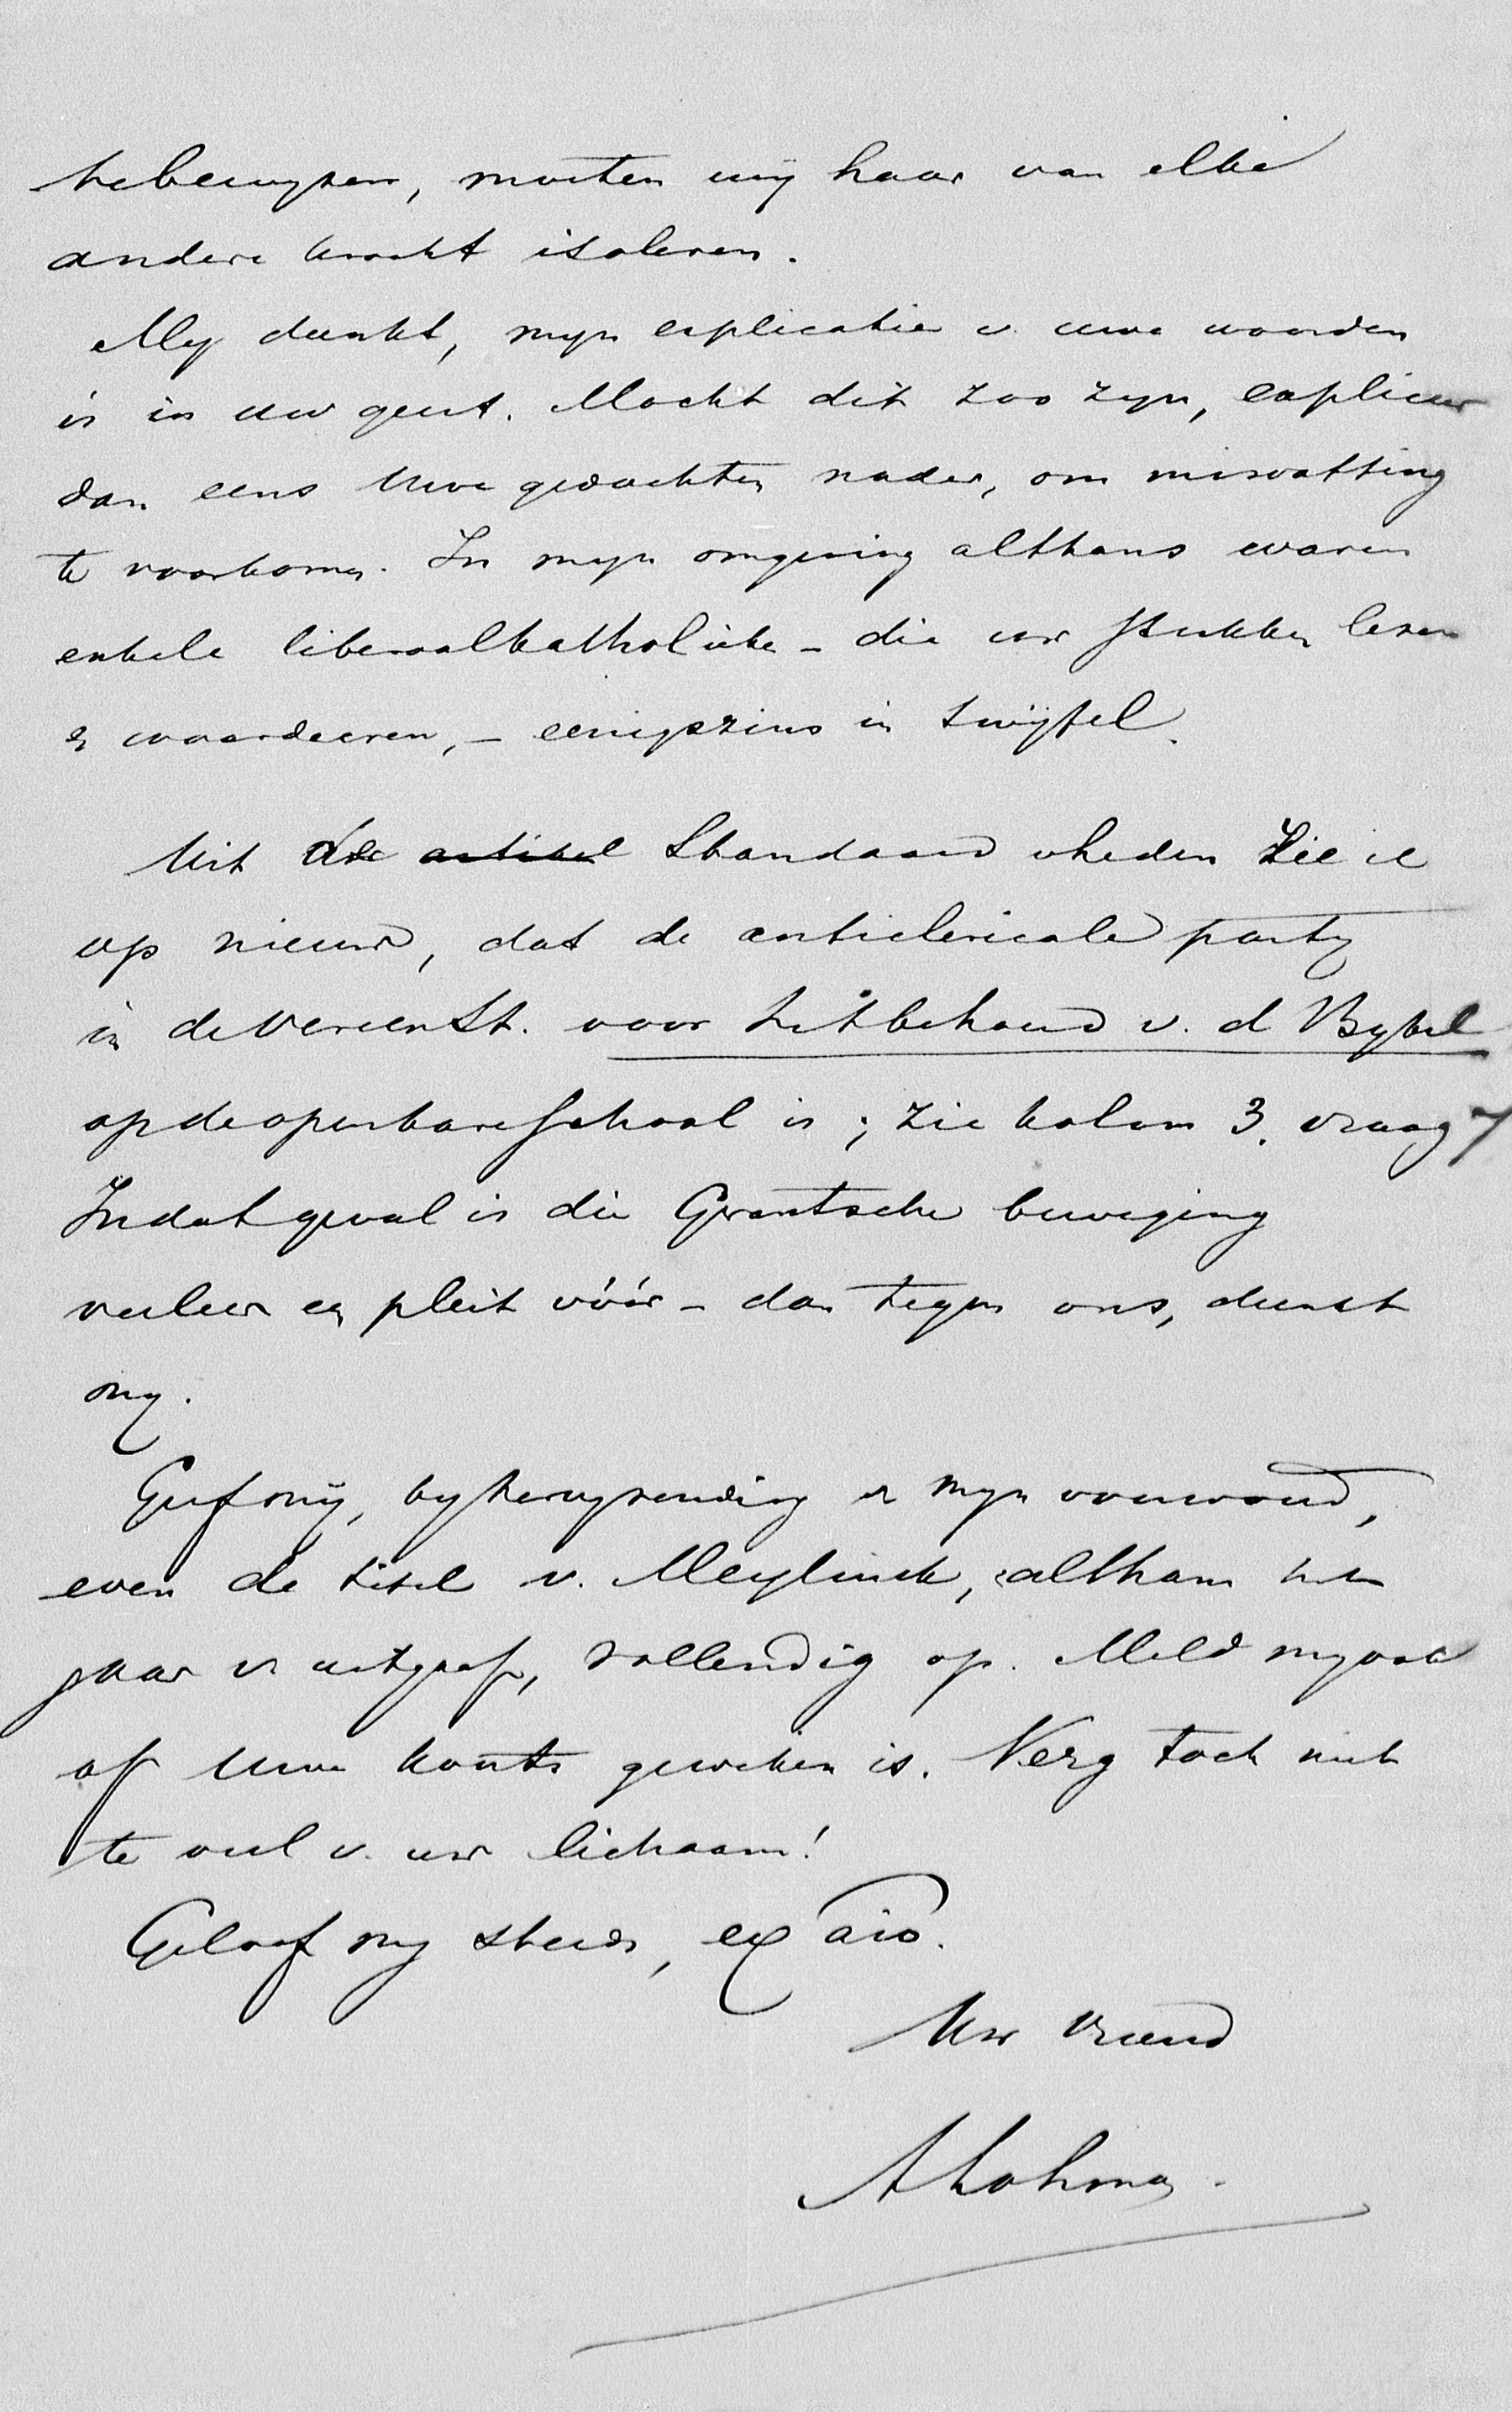 te bewyzen, moeten wij haar van elke
andere kracht isoleren.
My dunkt, myn explicatie v. uwe woorden
is in uw geest. Mocht dit zoo zyn, expliceer
dan eens Uwe gedachten nader, om misvatting
te voorkomen. In myn omgeving althans waren
enkele liberaalkatholieke – die uw stukken lezen
en waardeeren, – eenigszins in twijfel.
Uit de artikel Standaard v heden zie ik
op nieuw, dat de anticlericale party
in de Vereen St. voor het behoud v. d Bybel
op de openbare school is; zie kolom 3. vraag 7
In dat geval is die Grantsche beweging
veeleer een pleit vóór – dan tegen ons, dunkt
my.
Geef mij, by terugzending v myn voorwoord,
even de titel v. Meylink, althans het
jaar v uitgaaf, volledig op. Meld my ook
of Uwe koorts geweken is. Verg toch niet
te veel v. uw lichaam!
Geloof my steeds, ex aio.
Uw vriend
A Lohman.